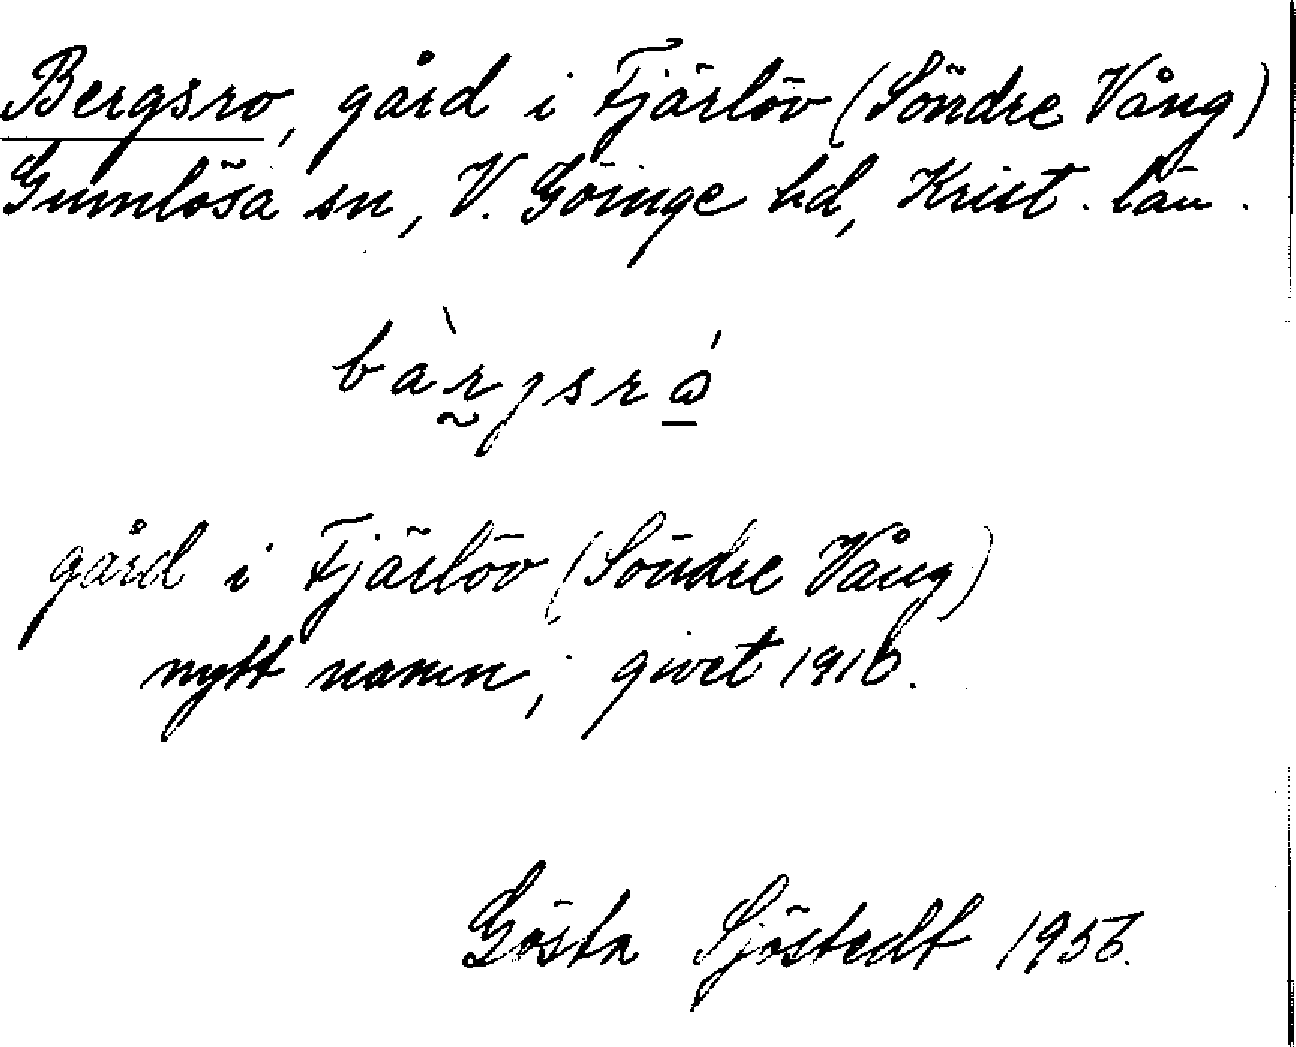 Bergsro, gård i Fjärlöv (Söndre Vång)
Gumlösa sn, V. Göinge hd, Krist. län.
bàr̰jsrǻ̲
gård i Fjärlöv (Söndre Vång)
nytt namn, givet 1916.
Gösta Sjöstedt 1956.